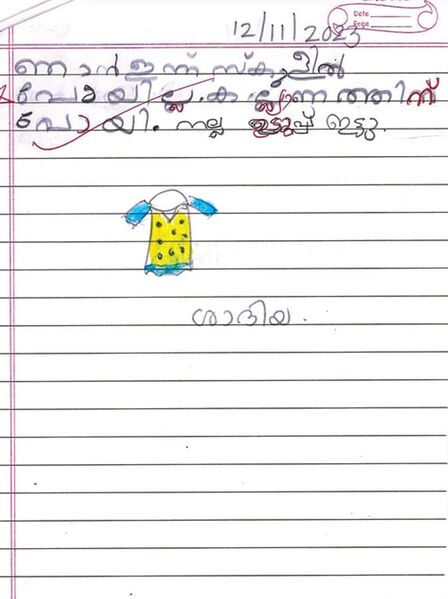 Date
Page
12/11/2025
ഞാൻ ഇന്ന് സ്കൂളിൽ
പോയില്ല. കല്ല്യാണത്തിന്
പോയി. നല്ല ഉടുപ്പ് ഇട്ടു.
ശാദിയ.